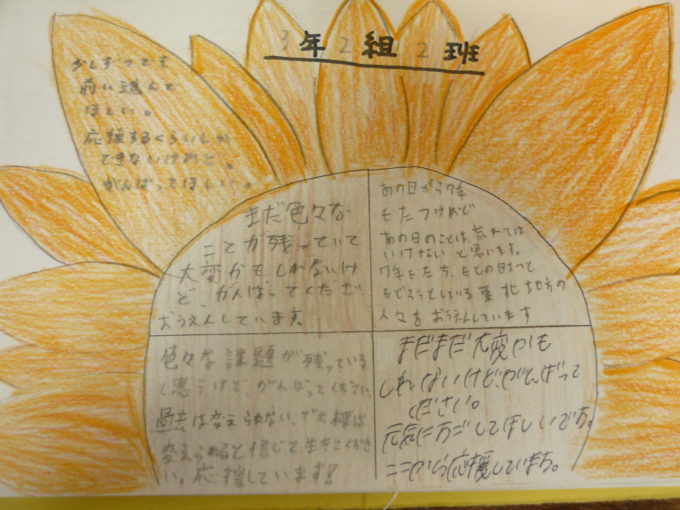 3年2組2班
少しずつでも
前に進んで
ほしい。
応援するくらいしか
できないけれど。
がんばってほしい。
まだ色々な
ことが残っていて
大変かもしれないけ
ど、がんばってくださ
おうえんしています。
あの日から7年
もたつけれど
あの日のことは忘れては
いけないと思います。
7年もたち、もとの町へと
もどろうとしている東北地方の
人々をおうえんしています
色々な課題が残っている
と思うけど、がんばってください。
過去は変えられない、でも未来は
変えられると信じて生きてくださ
い。応援しています!
まだまだ大変かも
しれないけどがんばって
ください。
元気にすごしてほしいです。
ここから応援しています。